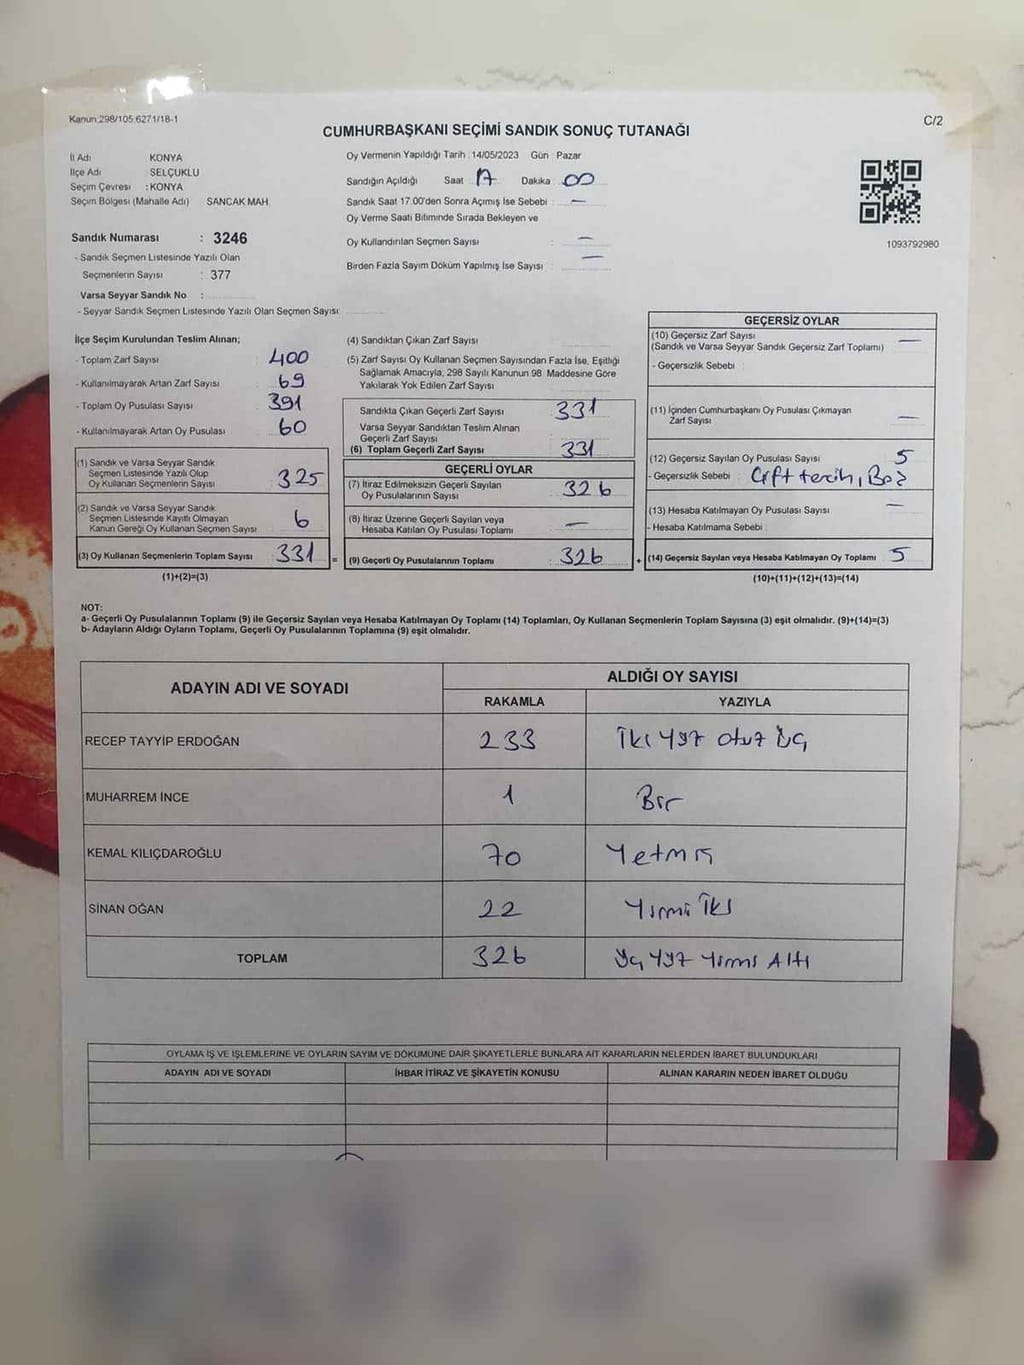 Kanun:298/105,6271/18-1
C/2
CUMHURBAŞKANI SEÇİMİ SANDIK SONUÇ TUTANAĞI
İl Adı KONYA
İlçe Adı : SELÇUKLU
Seçim Çevresi : KONYA
Seçim Bölgesi (Mahalle Adı) SANCAK MAH.
Sandık Numarası : 3246
- Sandık Seçmen Listesinde Yazılı Olan
Seçmenlerin Sayısı : 377
Varsa Seyyar Sandık No :
- Seyyar Sandık Seçmen Listesinde Yazılı Olan Seçmen Sayısı
Oy Vermenin Yapıldığı Tarih :14/05/2023 Gün : Pazar
Sandığın Açıldığı Saat 17 Dakika 00
Sandık Saat 17.00'den Sonra Açımış İse Sebebi : —
Oy Verme Saati Bitiminde Sırada Bekleyen ve
Oy Kullandırılan Seçmen Sayısı : —
Birden Fazla Sayım Döküm Yapılmış İse Sayısı : —
1093792980
İlçe Seçim Kurulundan Teslim Alınan;
- Toplam Zarf Sayısı 400
- Kullanılmayarak Artan Zarf Sayısı 69
- Toplam Oy Pusulası Sayısı 391
- Kullanılmayarak Artan Oy Pusulası 60
(1) Sandık ve Varsa Seyyar Sandık
Seçmen Listesinde Yazılı Olup
Oy Kullanan Seçmenlerin Sayısı 325
(2) Sandık ve Varsa Seyyar Sandık
Seçmen Listesinde Kayıtlı Olmayan
Kanun Gereği Oy Kullanan Seçmen Sayısı 6
(3) Oy Kullanan Seçmenlerin Toplam Sayısı 331 =
(1)+(2)=(3)
(4) Sandıktan Çıkan Zarf Sayısı
(5) Zarf Sayısı Oy Kullanan Seçmen Sayısından Fazla İse, Eşitliği
Sağlamak Amacıyla, 298 Sayılı Kanunun 98. Maddesine Göre
Yakılarak Yok Edilen Zarf Sayısı
Sandıkta Çıkan Geçerli Zarf Sayısı 331
Varsa Seyyar Sandıktan Teslim Alınan
Geçerli Zarf Sayısı
(6) Toplam Geçerli Zarf Sayısı 331
GEÇERLİ OYLAR
(7) İtiraz Edilmeksizin Geçerli Sayılan
Oy Pusulalarının Sayısı 326
(8) İtiraz Üzerine Geçerli Sayılan veya
Hesaba Katılan Oy Pusulası Toplamı —
(9) Geçerli Oy Pusulalarının Toplamı 326 +
GEÇERSİZ OYLAR
(10) Geçersiz Zarf Sayısı —
(Sandık ve Varsa Seyyar Sandık Geçersiz Zarf Toplamı)
- Geçersizlik Sebebi :
(11) İçinden Cumhurbaşkanı Oy Pusulası Çıkmayan
Zarf Sayısı —
(12) Geçersiz Sayılan Oy Pusulası Sayısı 5
- Geçersizlik Sebebi : Çift tercih, Boş
(13) Hesaba Katılmayan Oy Pusulası Sayısı —
- Hesaba Katılmama Sebebi
(14) Geçersiz Sayılan veya Hesaba Katılmayan Oy Toplamı 5
(10)+(11)+(12)+(13)=(14)
NOT:
a- Geçerli Oy Pusulalarının Toplamı (9) ile Geçersiz Sayılan veya Hesaba Katılmayan Oy Toplamı (14) Toplamları, Oy Kullanan Seçmenlerin Toplam Sayısına (3) eşit olmalıdır. (9)+(14)=(3)
b- Adayların Aldığı Oyların Toplamı, Geçerli Oy Pusulalarının Toplamına (9) eşit olmalıdır.
ADAYIN ADI VE SOYADI
ALDIĞI OY SAYISI
RAKAMLA YAZIYLA
RECEP TAYYİP ERDOĞAN 233 İki yüz otuz üç
MUHARREM İNCE 1 Bir
KEMAL KILIÇDAROĞLU 70 Yetmiş
SİNAN OĞAN 22 Yirmi İki
TOPLAM 326 Üç yüz Yirmi Altı
OYLAMA İŞ VE İŞLEMLERİNE VE OYLARIN SAYIM VE DÖKÜMÜNE DAİR ŞİKAYETLERLE BUNLARA AİT KARARLARIN NELERDEN İBARET BULUNDUKLARI
ADAYIN ADI VE SOYADI İHBAR İTİRAZ VE ŞİKAYETİN KONUSU ALINAN KARARIN NEDEN İBARET OLDUĞU